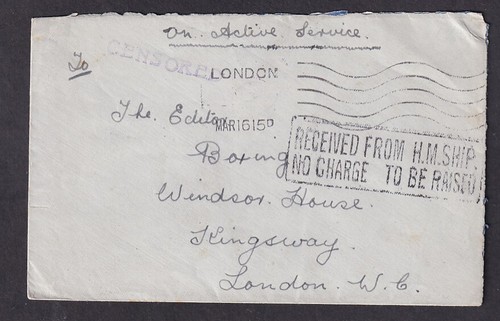 On Active Service.
To
CENSORED
LONDON
MAR 16 15 D
The Editor
RECEIVED FROM H.M. SHIP
NO CHARGE TO BE RAISED
Boxing
Windsor House.
Kingsway.
London. W.C.